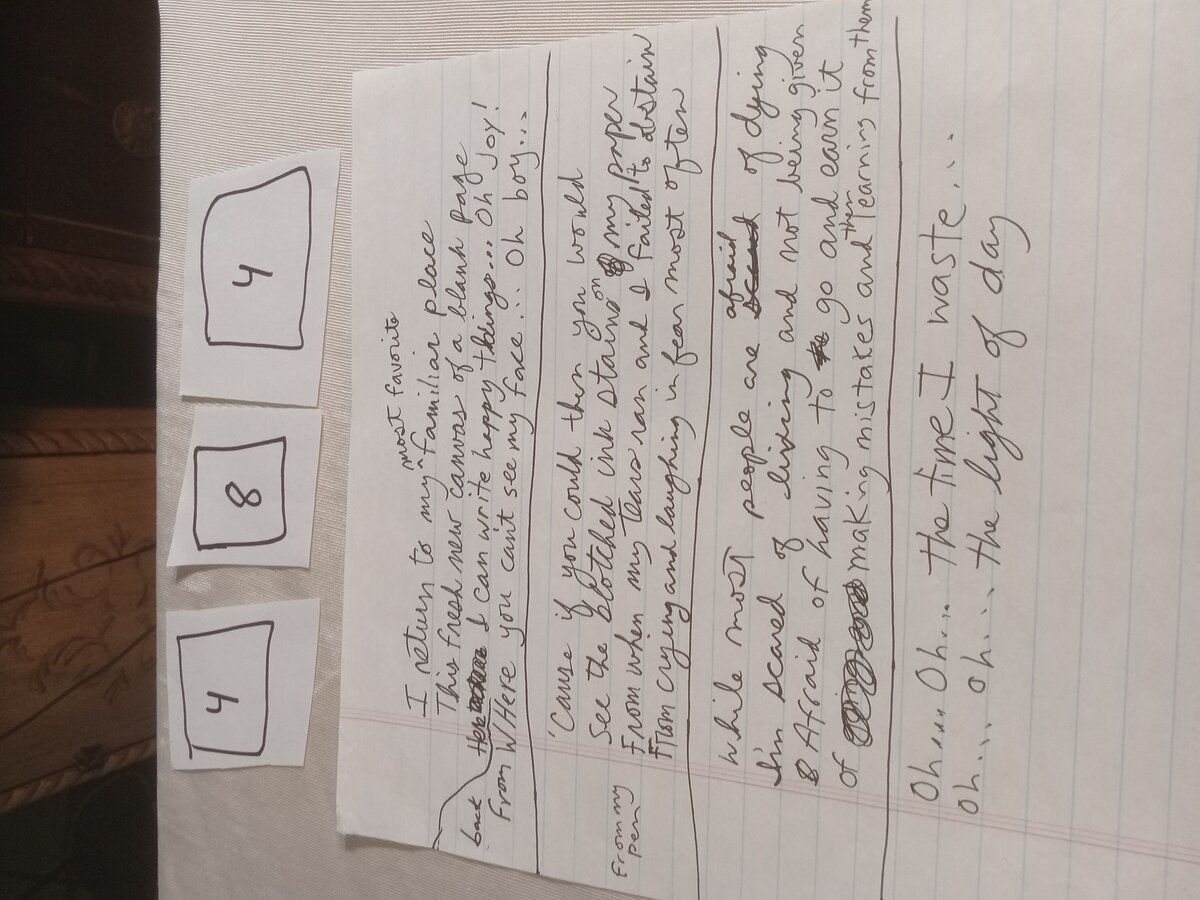 4
8
4
most favorite
I return to my ^ familiar place
This fresh new canvas of a blank page
back I can write happy things... Oh Joy!
From WHere you can't see my face... Oh boy...
'Cause if you could then you would
see the blotched ink stains on my paper
From my pen
From when my tears ran and I failed to abstain
From crying and laughing in fear most often
While most people are afraid of dying
I'm scared of living and not being given
& Afraid of having to go and earn it
of making mistakes and then learning from them
Oh.... Oh... the time I waste...
Oh... oh... the light of day